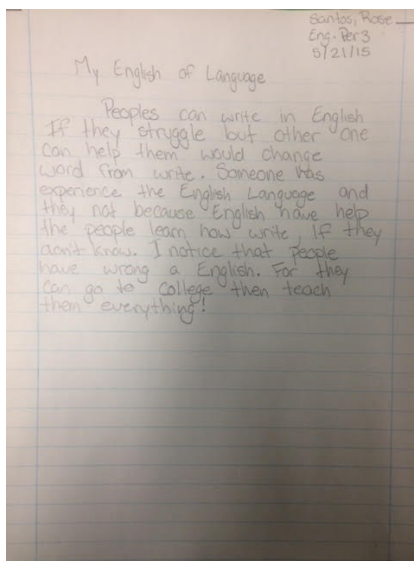 Santos, Rose
Eng. Per 3
5/21/15
My English of Language
Peoples can write in English
If they struggle but other one
can help them would change
word from write. Someone has
experience the English Language and
they not because English have help
the people learn how write, If they
don't know. I notice that people
have wrong a English. For they
can go to college then teach
them everything!